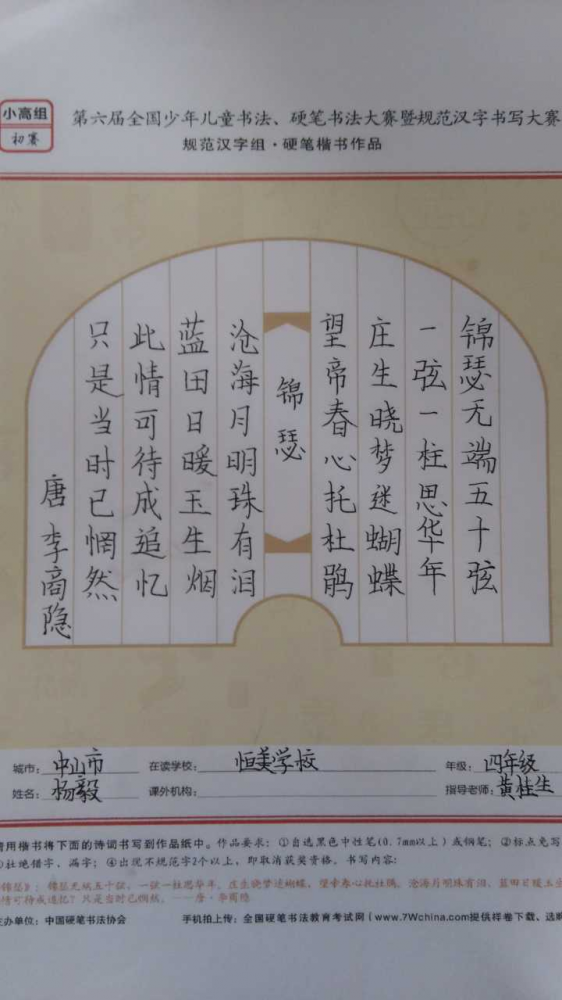 小高组
初赛
第六届全国少年儿童书法、硬笔书法大赛暨规范汉字书写大赛
规范汉字组·硬笔楷书作品
锦瑟无端五十弦
一弦一柱思华年
庄生晓梦迷蝴蝶
望帝春心托杜鹃
锦瑟
沧海月明珠有泪
蓝田日暖玉生烟
此情可待成追忆
只是当时已惘然
唐 李商隐
城市：中山市 在读学校：恒美学校 年级：四年级
姓名：杨毅 课外机构： 指导老师：黄桂生
用楷书将下面的诗词书写到作品纸中。作品要求：①自选黑色中性笔(0.7mm以上)或钢笔；②标点免写
杜绝错字、漏字；④出现不规范字2个以上，即取消获奖资格。书写内容：
锦瑟》：锦瑟无端五十弦，一弦一柱思华年。庄生晓梦迷蝴蝶，望帝春心托杜鹃。沧海月明珠有泪，蓝田日暖玉生
情可待成追忆？只是当时已惘然。——唐·李商隐
主办单位：中国硬笔书法协会 手机拍上传：全国硬笔书法教育考试网(www.7Wchina.com提供样卷下载、选